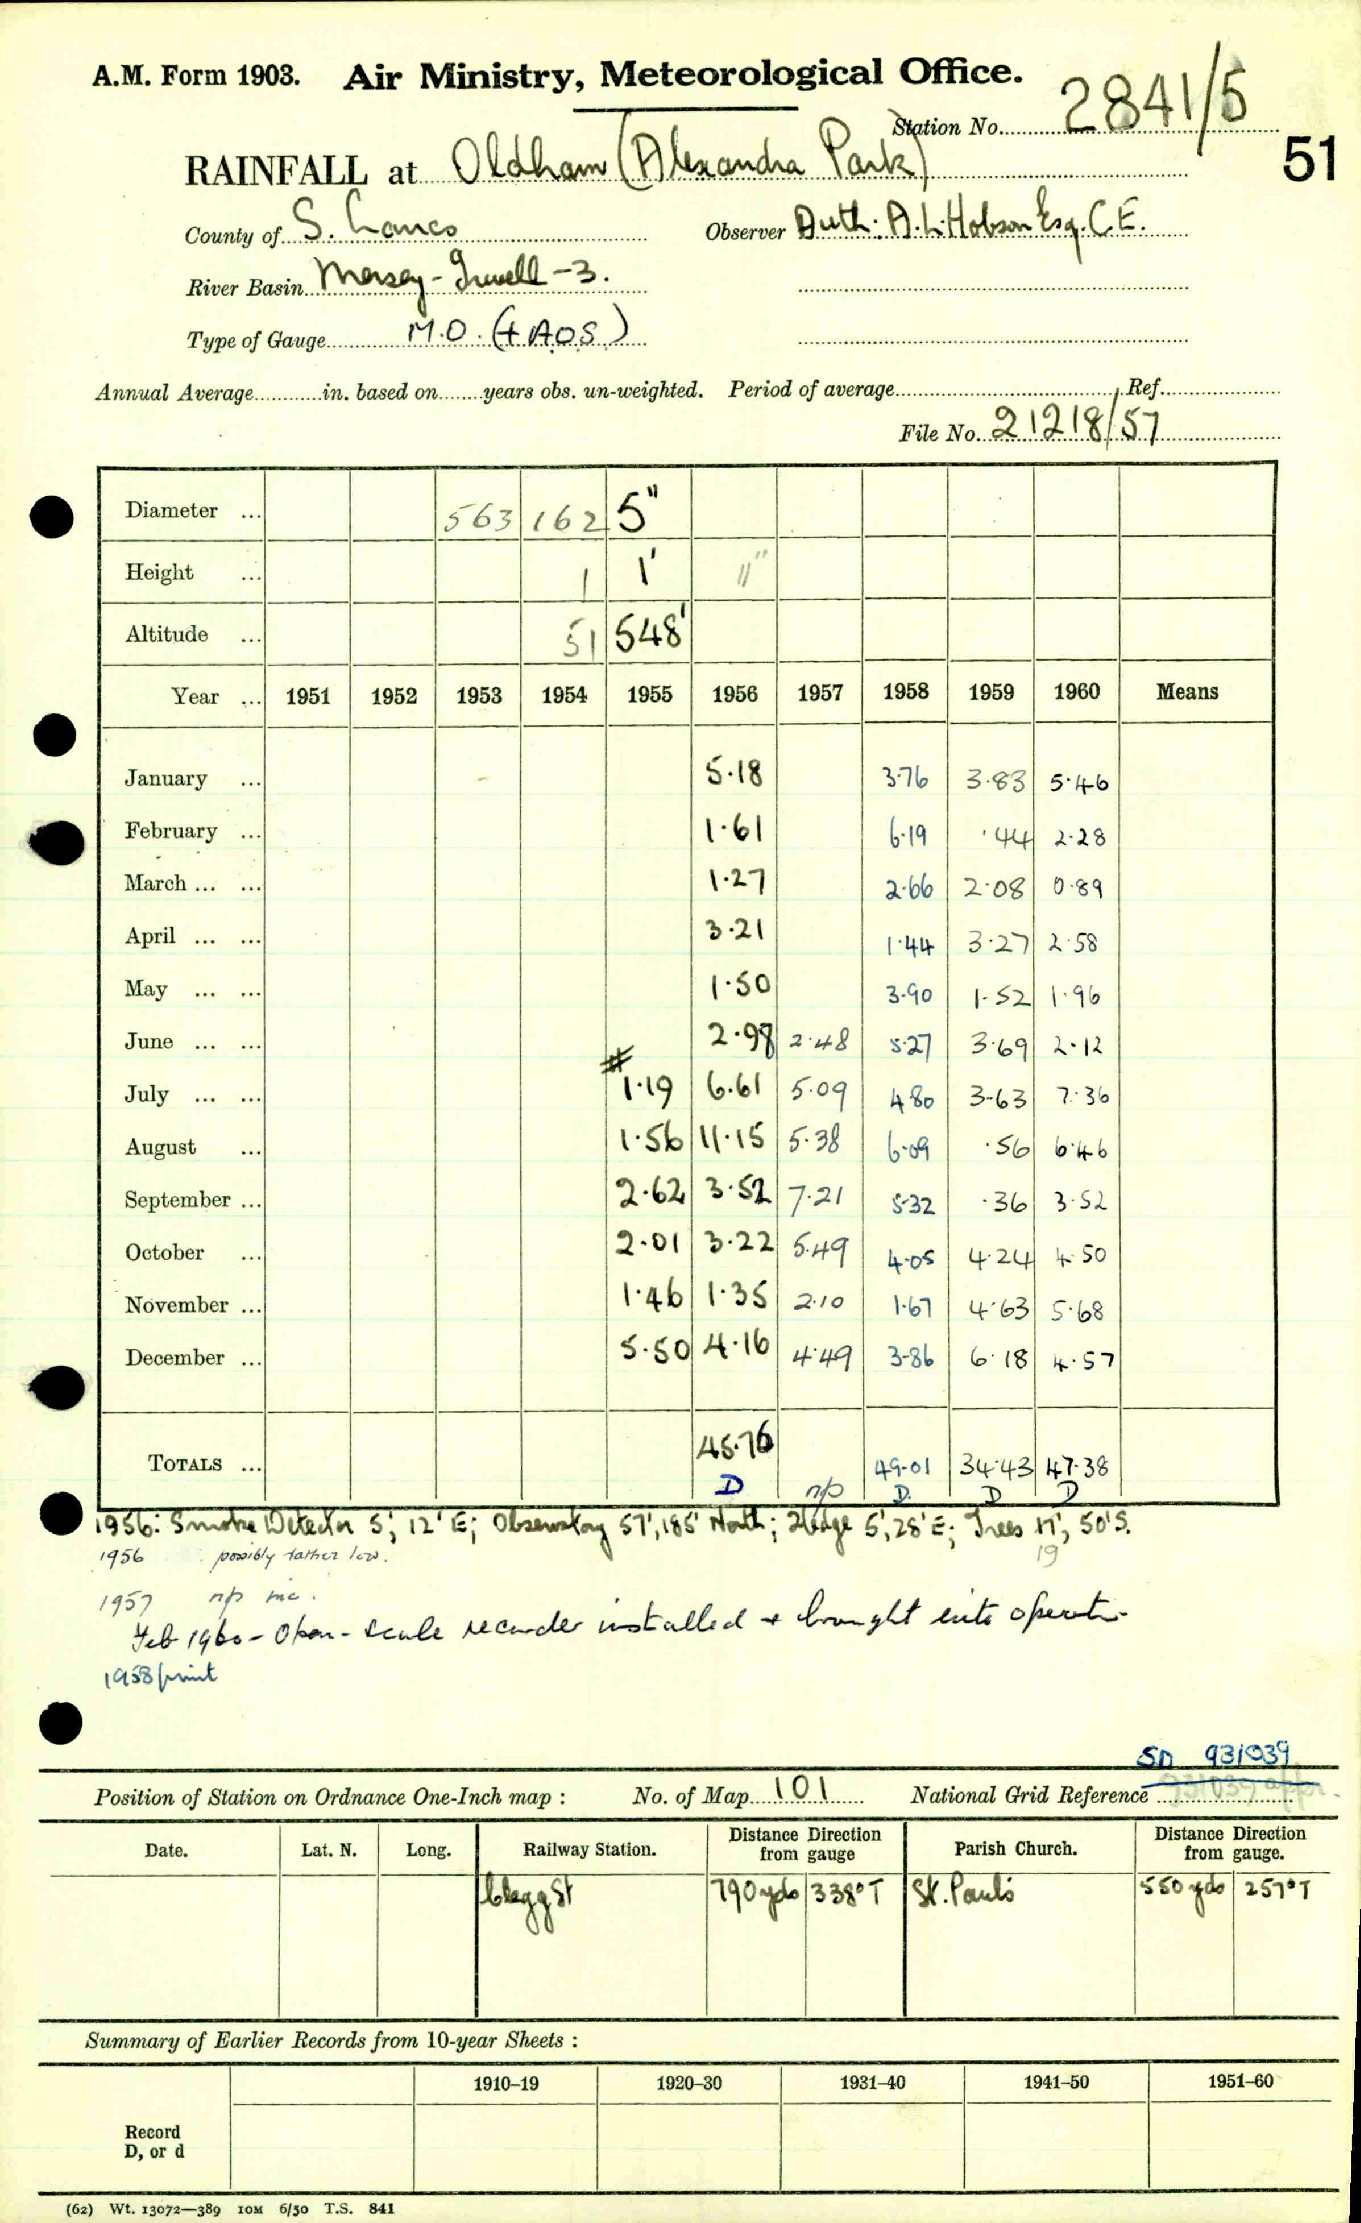 A.M. Form 1903. Air Ministry, Meteorological Office.
Station No. 2841/5
51
RAINFALL at Oldham (Alexandra Park)
County of S. Lancs Observer Auth: A.L. Hobson Esq. C.E.
River Basin Mersey - Irwell - 3.
Type of Gauge M.O. (+ AOS)
Annual Average in. based on years obs. un-weighted. Period of average Ref.
File No. 21218/57
Diameter ... 563 162 5"
Height ... 1 1' 11"
Altitude ... 51 548'
Year ... 1951 1952 1953 1954 1955 1956 1957 1958 1959 1960 Means
January ... 5.18 3.76 3.83 5.46
February ... 1.61 6.19 .44 2.28
March ... ... 1.27 2.66 2.08 0.89
April ... ... 3.21 1.44 3.27 2.58
May ... ... 1.50 3.90 1.52 1.96
June ... ... 2.98 2.48 5.27 3.69 2.12
#
July ... ... 1.19 6.61 5.09 4.80 3.63 7.36
August ... 1.56 11.15 5.38 6.09 .56 6.46
September ... 2.62 3.52 7.21 5.32 .36 3.52
October ... 2.01 3.22 5.49 4.05 4.24 4.50
November ... 1.46 1.35 2.10 1.67 4.63 5.68
December ... 5.50 4.16 4.49 3.86 6.18 4.57
TOTALS ... 45.76 49.01 34.43 47.38
D np D. D D
1956: Smoke Detector 5', 12' E; Observatory 57', 185' North; Hedge 5', 28' E; Trees 17', 50' S.
19
1956 possibly rather low.
1957 np inc.
Feb 1960 - Open-scale recorder installed & brought into operatn
1958 print
SD 931039
Position of Station on Ordnance One-Inch map : No. of Map 101 National Grid Reference 931039 appr.
Date. Lat. N. Long. Railway Station. Distance from gauge Direction Parish Church. Distance from gauge. Direction
Clegg St 790 yds 338° T St. Paul's 550 yds 257° T
Summary of Earlier Records from 10-year Sheets :
1910–19 1920–30 1931–40 1941–50 1951–60
Record
D, or d
(62) Wt. 13072—389 10M 6/50 T.S. 841